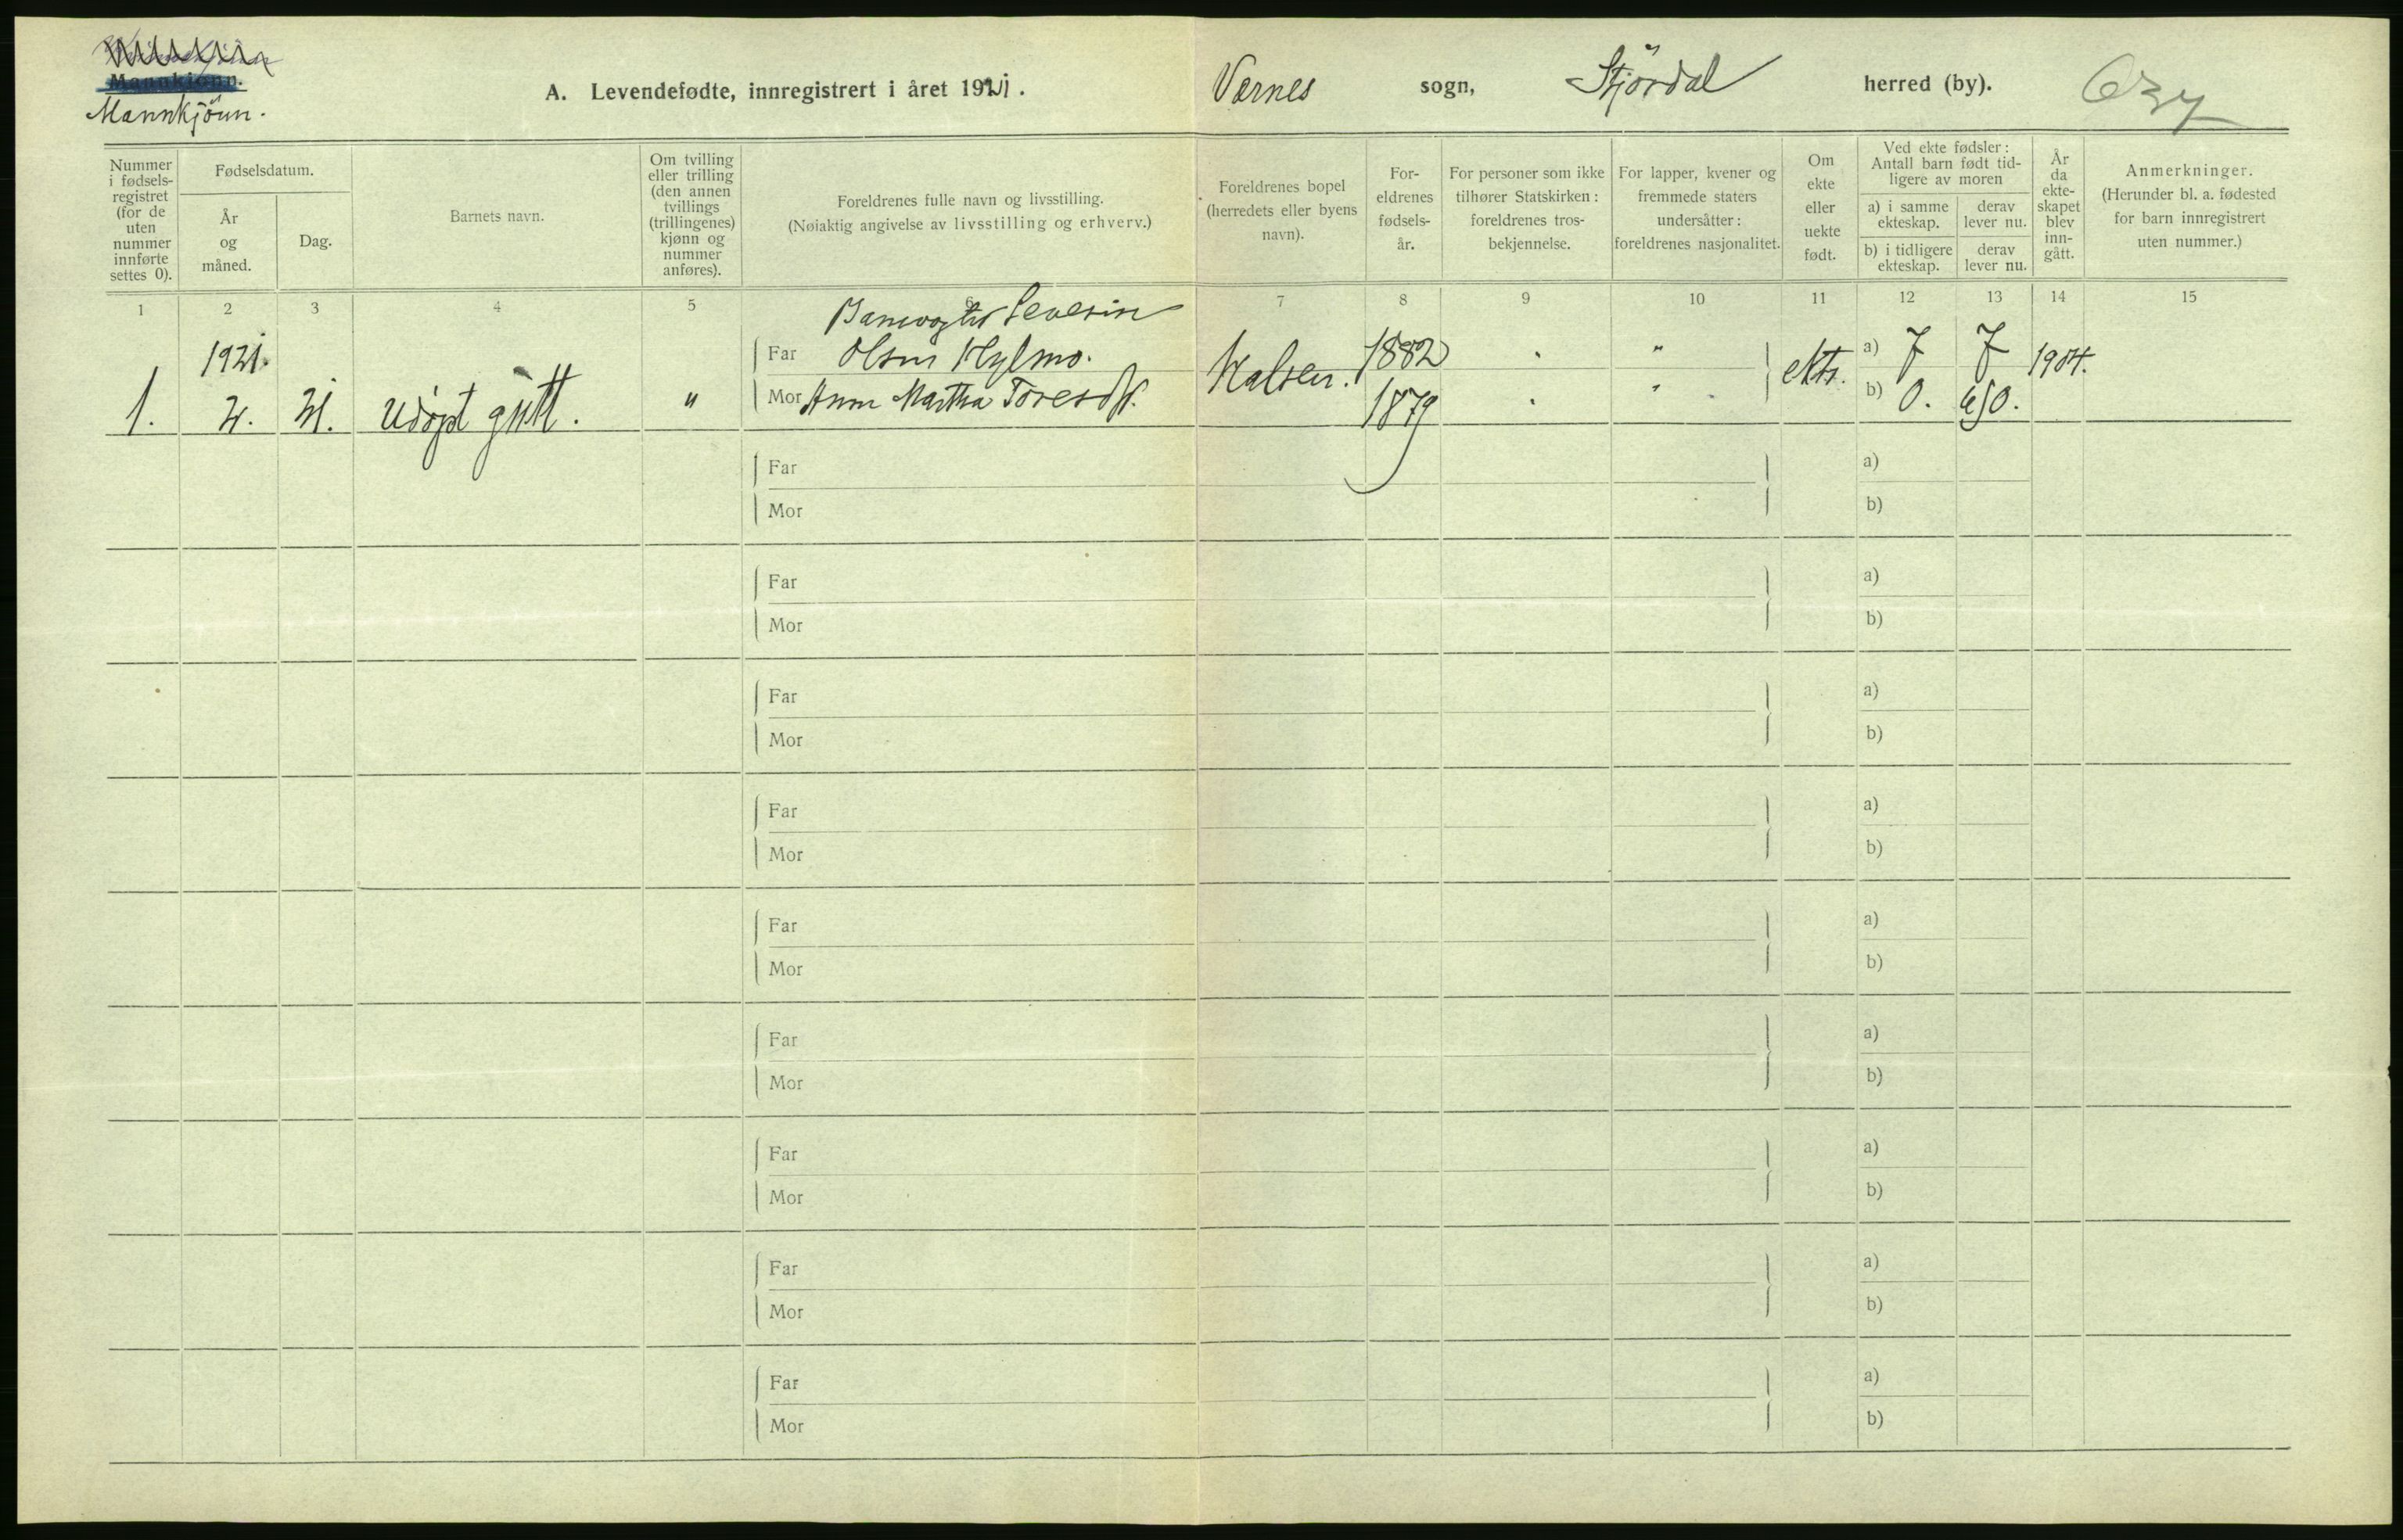 Mannkjønn.
Mannkjönn.
A. Levendefødte, innregistrert i året 1921.
Værnes sogn, Stjördal herred (by).
Nummer i fødselsregistret (for de uten nummer innførte settes 0).
Fødselsdatum.
År og måned.
Dag.
Barnets navn.
Om tvilling eller trilling (den annen tvillings (trillingenes) kjønn og nummer anføres).
Foreldrenes fulle navn og livsstilling.
(Nøiaktig angivelse av livsstilling og erhverv.)
Foreldrenes bopel (herredets eller byens navn).
Foreldrenes fødselsår.
For personer som ikke tilhører Statskirken: foreldrenes trosbekjennelse.
For lapper, kvener og fremmede staters undersåtter: foreldrenes nasjonalitet.
Om ekte eller uekte født.
Ved ekte fødsler: Antall barn født tidligere av moren
a) i samme ekteskap.
derav lever nu.
b) i tidligere ekteskap.
derav lever nu.
År da ekteskapet blev inngått.
Anmerkninger.
(Herunder bl. a. fødested for barn innregistrert uten nummer.)
1 2 3 4 5 6 7 8 9 10 11 12 13 14 15
Banevogter Severin
1921.
Far Olsen Hylmo. 1882 " a) 7 7 1904.
1. 2. 21. Udøpt gutt. " Mor Anna Martha Toresdt. 1879 " b) 0. 0.
Far a)
Mor b)
Far a)
Mor b)
Far a)
Mor b)
Far a)
Mor b)
Far a)
Mor b)
Far a)
Mor b)
Far a)
Mor b)
Far a)
Mor b)
Far a)
Mor b)